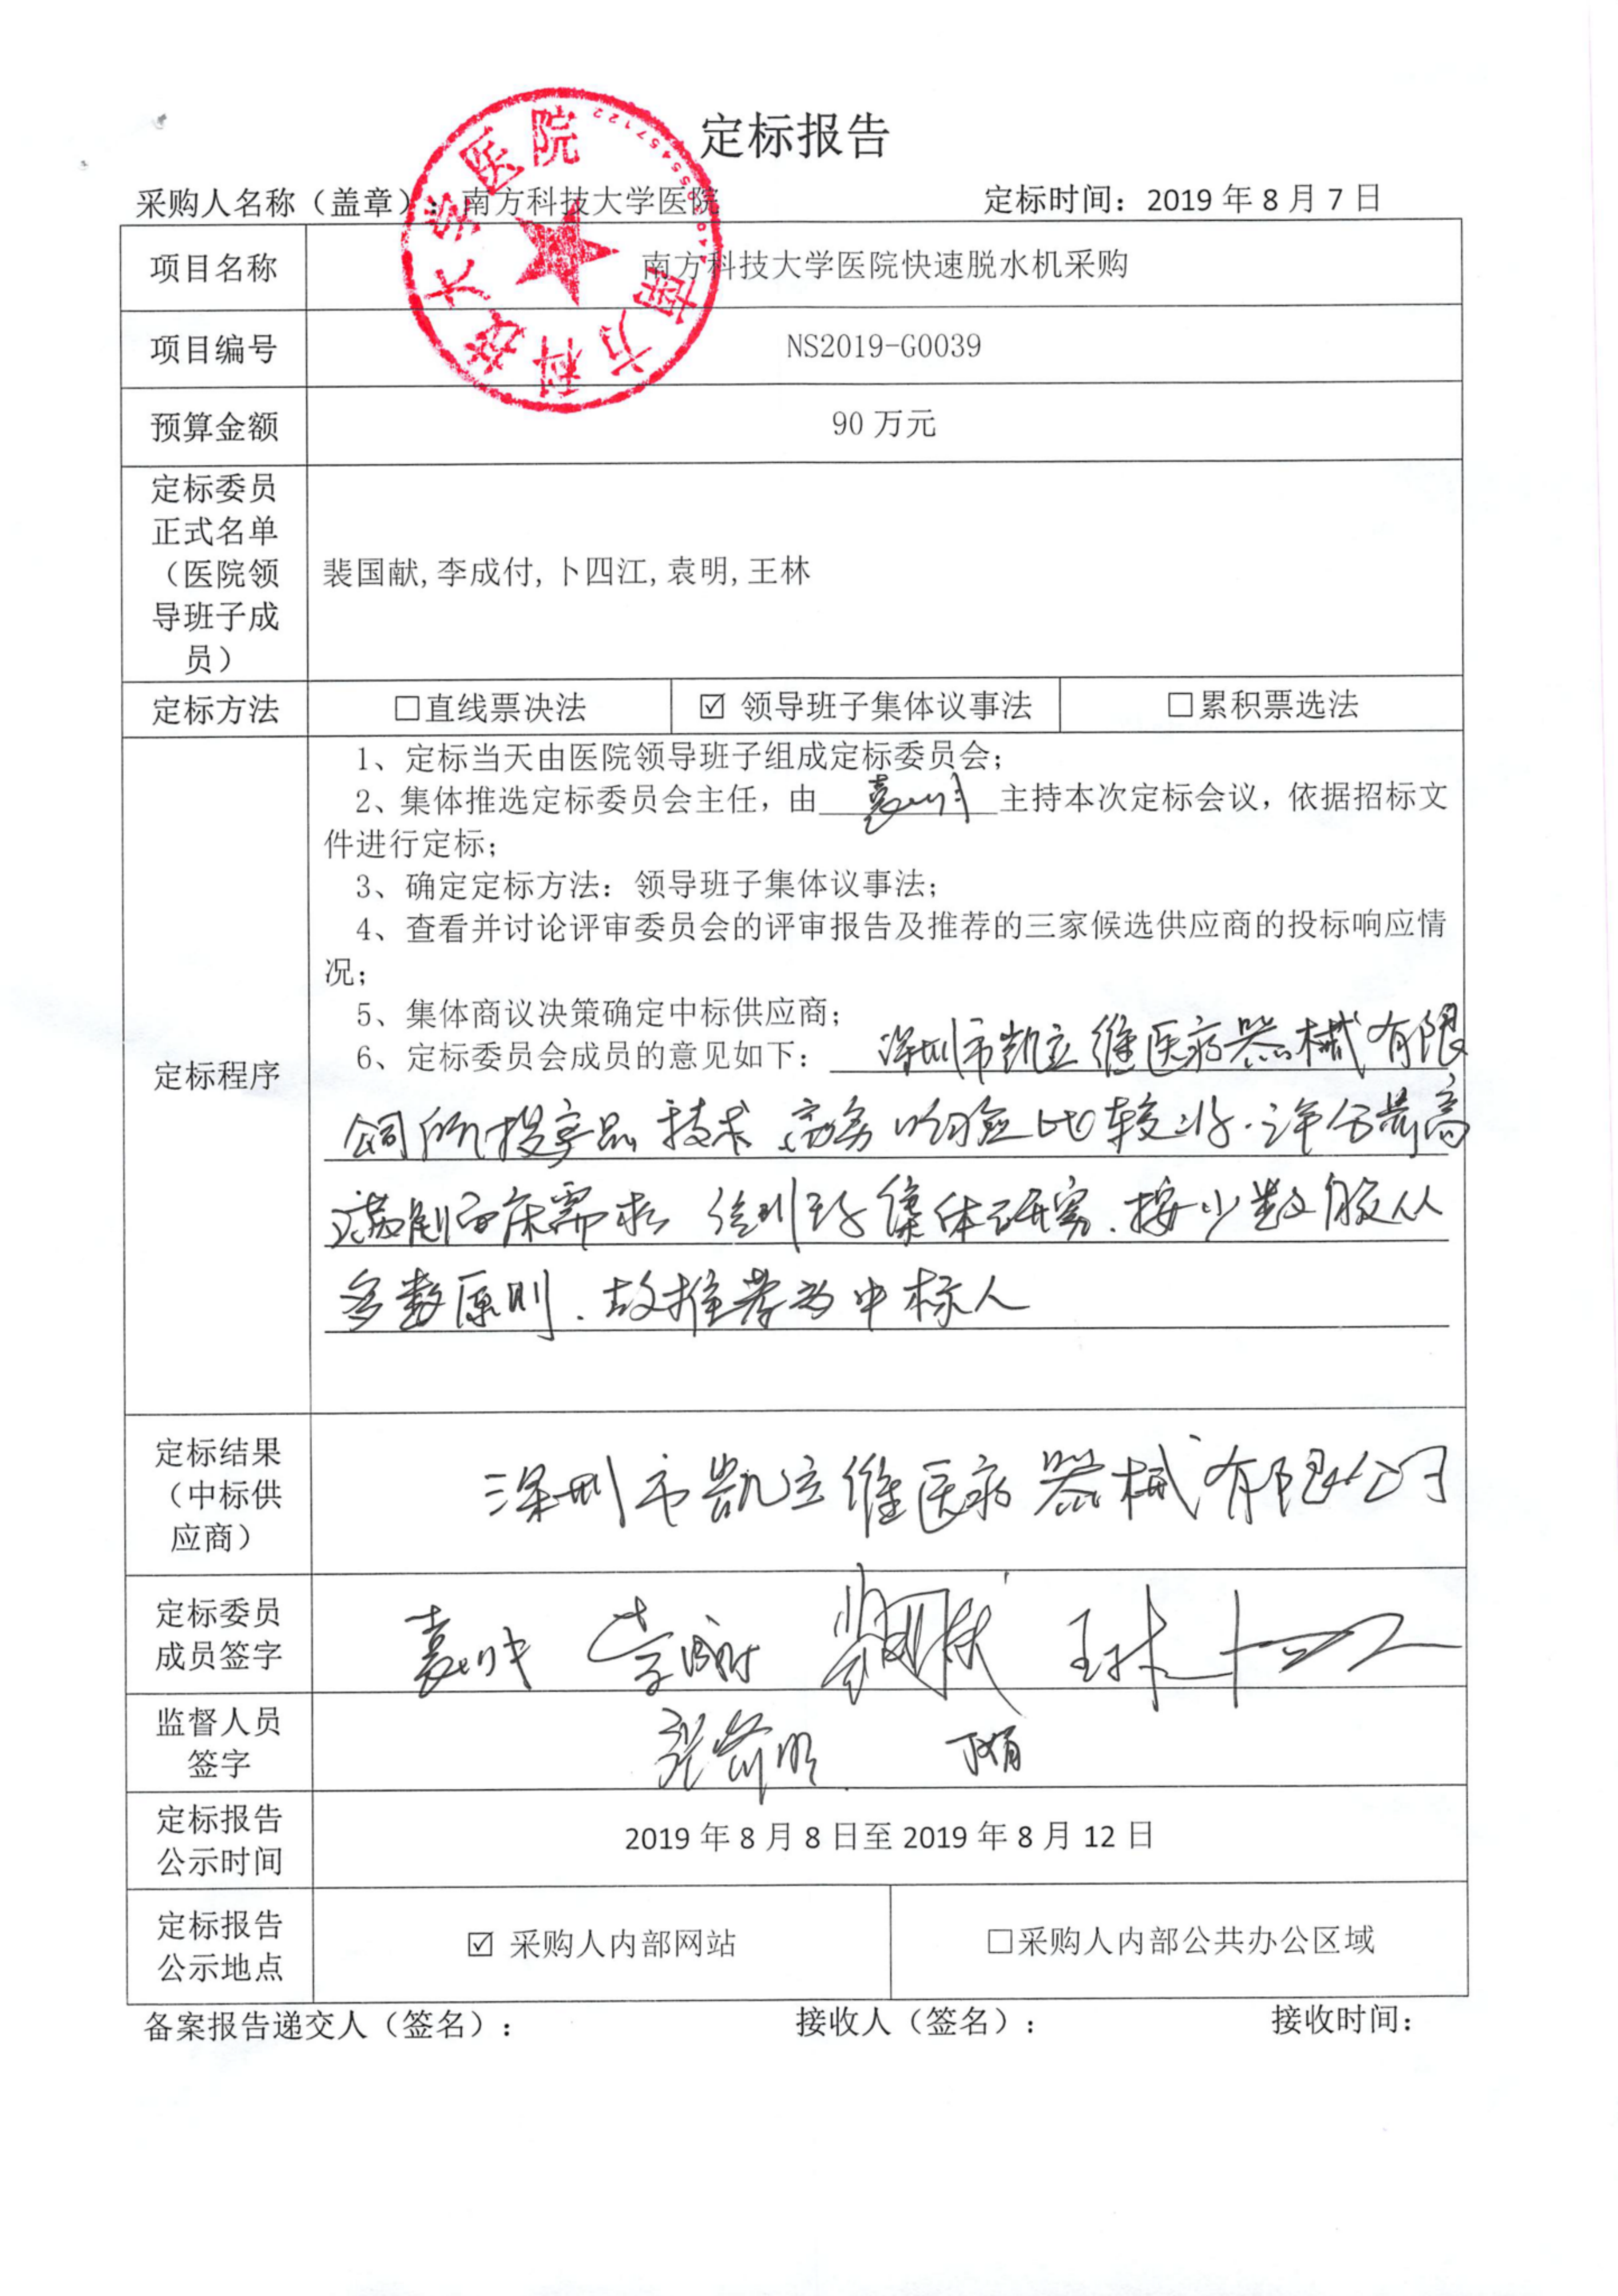 定标报告
采购人名称（盖章）：南方科技大学医院 定标时间：2019 年 8 月 7 日
南方科技大学医院
项目名称 南方科技大学医院快速脱水机采购
项目编号 NS2019-G0039
预算金额 90 万元
定标委员
正式名单
（医院领
导班子成
员）
裴国献, 李成付, 卜四江, 袁明, 王林
定标方法 ☐直线票决法 ☑ 领导班子集体议事法 ☐累积票选法
定标程序
1、定标当天由医院领导班子组成定标委员会；
2、集体推选定标委员会主任，由 袁明 主持本次定标会议，依据招标文
件进行定标；
3、确定定标方法：领导班子集体议事法；
4、查看并讨论评审委员会的评审报告及推荐的三家候选供应商的投标响应情
况；
5、集体商议决策确定中标供应商；
6、定标委员会成员的意见如下：深圳市凯立维医疗器械有限
公司所投产品技术 商务 响应比较好.评分最高
满足临床需求 经班子集体研究.按少数服从
多数原则.故推荐为中标人
定标结果
（中标供
应商）
深圳市凯立维医疗器械有限公司
定标委员
成员签字
袁明 李成付 裴国献 王林 卜四江
监督人员
签字
定标报告
公示时间
2019 年 8 月 8 日至 2019 年 8 月 12 日
定标报告
公示地点
☑ 采购人内部网站 ☐采购人内部公共办公区域
备案报告递交人（签名）： 接收人（签名）： 接收时间：